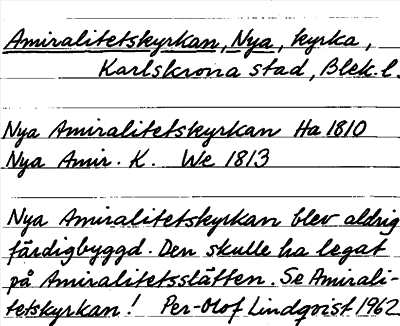 Amiralitetskyrkan, Nya, kyrka,
Karlskrona stad, Blek. l.
Nya Amiralitetskyrkan Ha 1810
Nya Amir. K. We 1813
Nya Amiralitetskyrkan blev aldrig
färdigbyggd. Den skulle ha legat
på Amiralitetsslätten. Se Amirali-
tetskyrkan! Per-Olof Lindqvist 1962